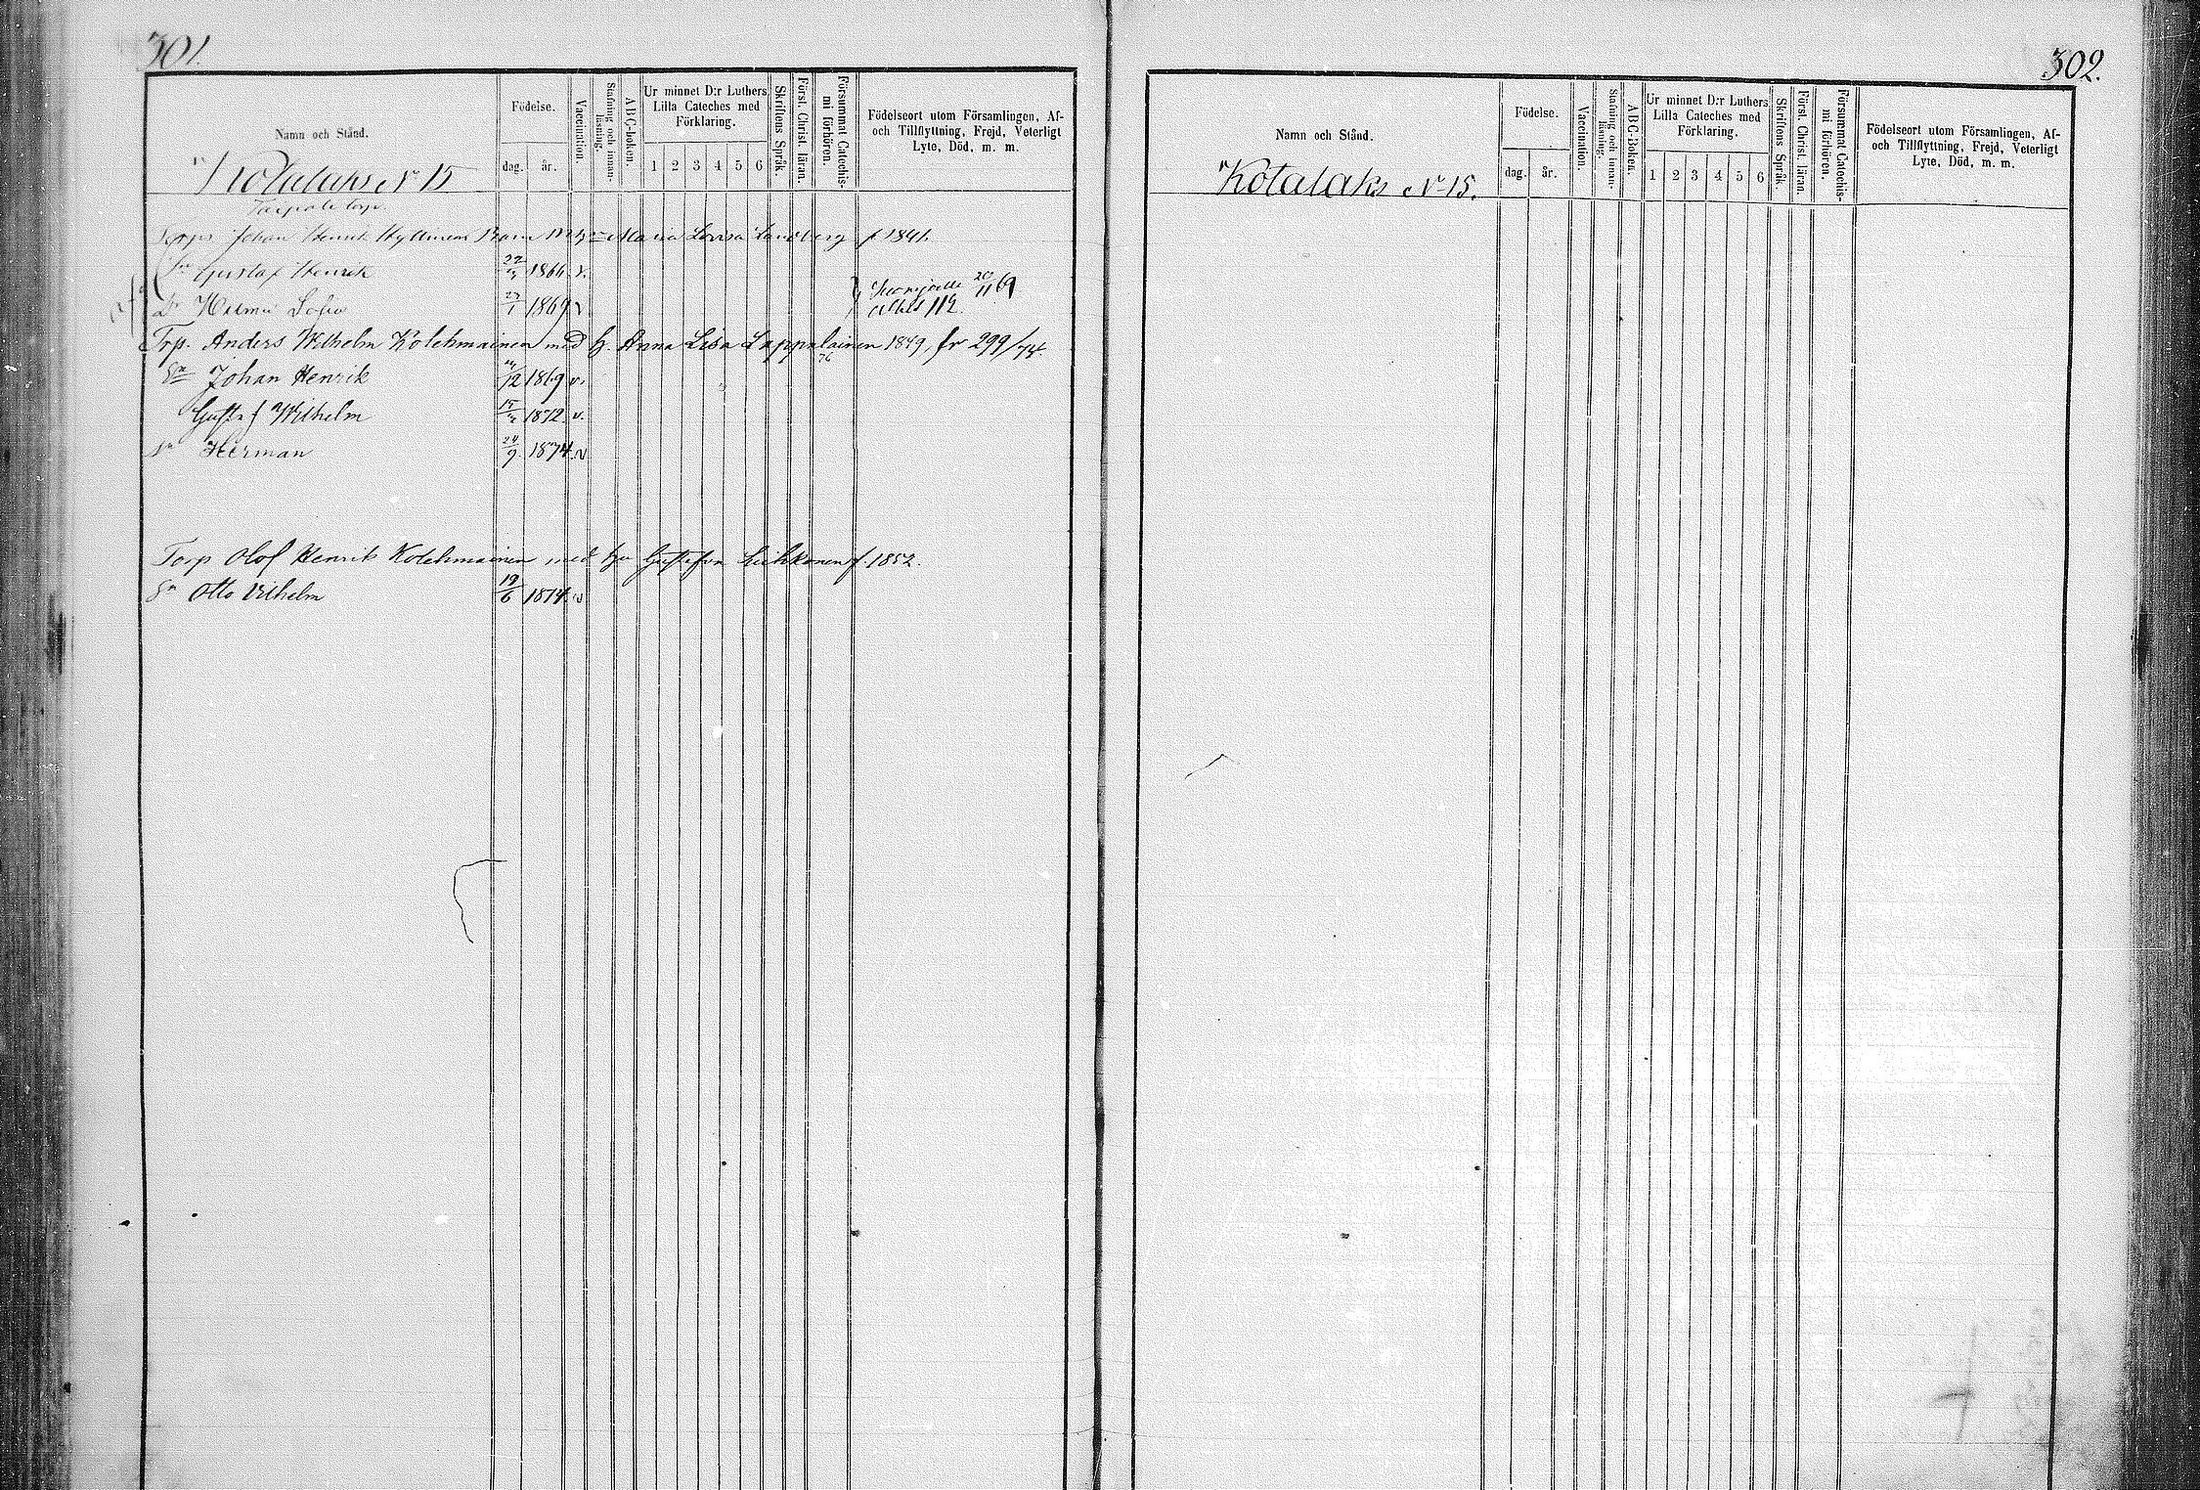 301.
Namn och Stånd.
Födelse.
dag.
år.
Vaccination.
Stafning och innan-
läsning.
ABC-boken.
Ur minnet D:r Luthers
Lilla Cateches med
Förklaring.
1 2 3 4 5 6
Skriftens Språk.
Först. Christ. läran.
Försummat Catechis-
mi förhören.
Födelseort utom Församlingen, Af-
och Tillflyttning, Frejd, Veterligt
Lyte, Död, m. m.
Kotalaks N 15
Taipale torp.
Johan Henrik Maria Lovisa Landberg f 1841.
Gustaf Henrik 1866 v.
Dr Helmi Sofia 27/1 1869 v
20/11 69
112.
Torp. Anders Wilhelm Kolehmainen med h. Anna Lisa Lappalainen 1849, fr 299/74.
76
Sn Johan Henrik /12 1869 v.
Gustaf Wilhelm 15/ 1872. v.
Sn Herman 24/9. 1874. v
Torp Olof Henrik Kolehmainen med hu Gustafva f. 1852.
Sn Otto Vilhelm 19/6 1874. v
302.
Namn och Stånd.
Födelse.
dag.
år.
Vaccination.
Stafning och innan-
läsning.
ABC-Boken.
Ur minnet D:r Luthers
Lilla Cateches med
Förklaring.
1 2 3 4 5 6
Skriftens Språk.
Först. Christ. läran.
Försummat Catechis-
mi förhören.
Födelseort utom Församlingen, Af-
och Tillflyttning, Frejd, Veterligt
Lyte, Död, m. m.
Kotalaks N 15.